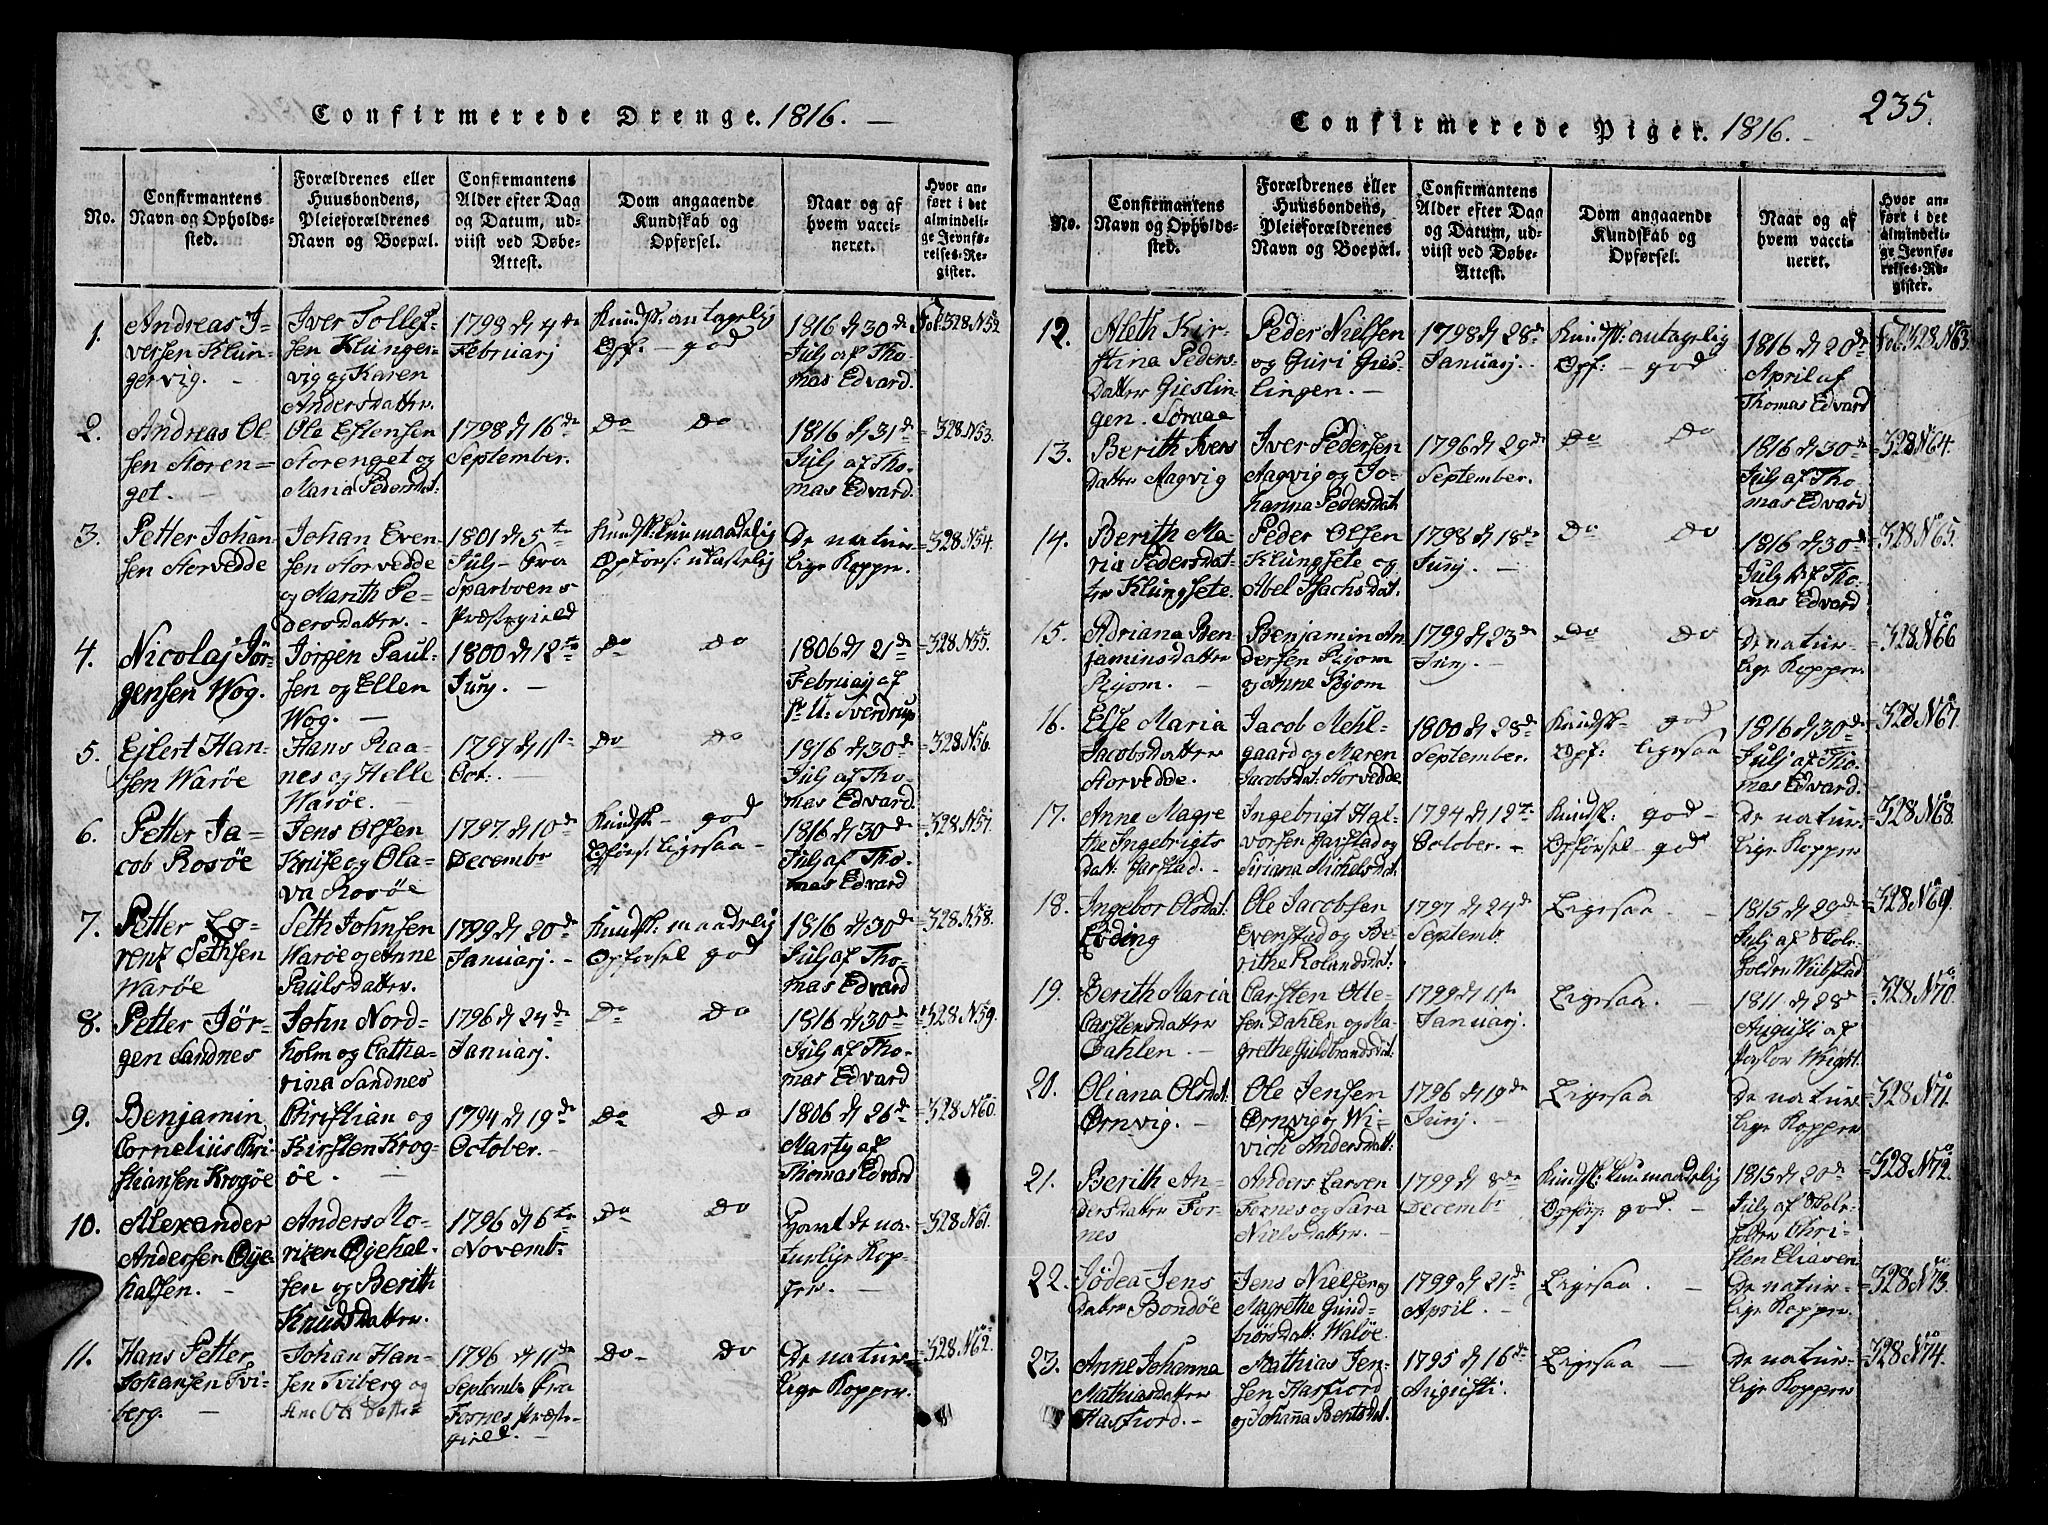 Confirmerede Drenge. 1816. —
No.
Confirmantens Navn og Opholds-sted.
Forældrenes eller Huusbondens, Pleieforældrenes Navn og Boepæl.
Confirmantens Alder efter Dag og Datum, ud-viist ved Døbe-Attest.
Dom angaaende Kundskab og Opførsel.
Naar og af hvem vacci-neret.
Hvor an-ført i det almindeli-ge Jevnfø-relses-Re-gister.
1.
Andreas I-
versen Klun-
gervig. -
Iver Tollef-
sen Klunger-
vig og Karen
Andersdatter.
1798 d 4de
Februarj
Kundsk: antagelig
Opf. - god
1816 d 30de
Julj af Tho-
mas Edvard.
Fol 328 N 52
2.
Andreas Ol-
sen Storen-
get. -
Ole Estensen
Storenget og
Maria Pedersdat:
1798 d 16de
September.
Do Do
1816 d 31de
Julj af Tho-
mas Edvard.
=328 N 53.
3.
Petter Johan-
sen Storvedde
Johan Even-
sen Storvedde
og Marith Pe-
dersdatter. -
1801 d 5te
Julj - fra
Sparboens
Præstegield
Kundsk: kun maadelig
Opførs: ulastelig
De natur-
lige Kopper.
=328 N 54.
4.
Nicolaj Jør-
gensen Wog.
Jørgen Paul-
sen og Ellen
Wog. —
1800 d 12te
Junj. -
Do Do
1806 d 21de
Februaj af
Hr U: Sverdrup
=328 N 55.
5.
Ejlert Han-
sen Warøe
Hans Raa-
nes og Helle
Warøe. -
1797 d 1ste
Oct: -
Do Do
1816 d 30de
Julj af Tho-
mas Edvard.
=328 N 56.
6.
Petter Ja-
cob Rosøe
Jens Olsen
Kruse og Ola-
va Rosøe
1797 d 10de
December
Kundsk - god
Opførs: ligesaa -
1816 d 30de
Julj af Tho-
mas Edvard
=328 N 57.
7.
Petter Lo-
renz Sethsen
Warøe
Seth Johnsen
Warøe og Anne
Paulsdatter.
1799 d 20de
Januarj. -
Kundsk: maadelig
Opførsel god
1816 d 30de
Julj af Tho-
mas Edvard
=328 N 58.
8.
Petter Jør-
gen Sandnes
John Nord-
holm og Catha-
rina Sandnes
1796 d 24de
Januarj.
Do Do
1816 d 30de
Julj af Tho-
mas Edvard
=328 N 59.
9.
Benjamin
Cornelius Chri-
stiansen Krogøe
Christian og
Kirsten Krog-
øe. -
1794 d 19de
October. -
Do Do
1806 d 26de
Martj af
Thomas Edvard
=328 N 60.
10.
Alexander
Andersen Øye-
halsen. -
Anders Mo-
rizen Øyehal-
sen og Berith
Knudsdatter.
1796 d 6te
Novemb:
Do Do
Havt de na-
turlige Kop-
per. -
=328 N 61.
11.
Hans Petter
Johansen Tvi-
berg. -
Johan Han-
sen Tviberg og
1796 d 11de
Septembr Fra
Fosnes Præste-
gield. -
Do - Do
De natur-
lige Kopper.
=328 N 62.
235.
Confirmerede Piger. 1816. -
No.
Confirmantens Navn og Opholds-sted.
Forældrenes eller Huusbondens, Pleieforældrenes Navn og Boepæl.
Confirmantens Alder efter Dag og Datum, ud-viist ved Døbe-Attest.
Dom angaaende Kundskab og Opførsel.
Naar og af hvem vacci-neret.
Hvor an-ført i det almindeli-ge Jevnfø-relses-Re-gister.
12.
Aleth Kir-
stina Peders-
Datter Gieslin-
gen. Søraae
Peder Nielsen
og Guri Gies-
lingen. -
1798 d 28de
Januarj. -
Kundsk: antagelig
Opf: - god
1816 d 20de
April af
Thomas Edvard
Fol 328. No 63.
13.
Berith Ivers
Datter Aagvig
Iver Pedersen
Aagvig og Jo-
hanna Pedersdat.
1796 d 29de
September.
Do Do
1816 d 30de
Julj af Tho-
mas Edvard
=328 No 64.
14.
Berith Ma-
ria Pedersdat-
ter Klungsete.
Peder Olsen
Klungsete og
Abel Isachsdat.
1798 d 18de
Junj. -
Do Do
1816 d 30de
Julj af Tho-
mas Edvard
=328 No 65.
15.
Adriana Ben-
jaminsdatter
Rijom. -
Benjamin An-
dersen Rijom
og Anne Rijom
1799 d 23de
Junj. -
Do Do
De natur-
lige Kopper.
=328 No 66
16.
Else Maria
Jacobsdatter
Storvedde.
Jacob Mehl-
gaard og Maren
Jacobsdat: Storvedde.
1800 d 28de
September.
Kundsk - god
Opf: ligesaa
1816 d 30de
Julj af Tho-
mas Edvard.
=328 No 67.
17.
Anne Magre
the Ingebrigts
datt: Harstad. -
Ingebrigt Hal-
vorsen Harstad og
Siriana Michelsdat.
1794 d 19te
October. -
Kundsk. god -
Opførsel - god
De natur-
lige Kopper
=328 No 68.
18.
Ingebor Olsdat.
Eviding
Ole Jacobsen
Evenstad og Be-
rithe Rolandsdat:
1797 d 24de
Septembr
Ligesaa. -
1815 d 29de
Julj af Hol-
=328 No 69.
19.
Berith Maria
Carstensdatter
Dahlen. -
Carsten Olle-
sen Dahlen og Ma-
grethe Hildbrandsdat.
1799 d 1ste
Januarj.
Ligesaa. -
1811 d 28de
Augusti af
Pastor Wright
=328 No 70.
20.
Oliana Olsdat.
Ørnvig. -
Ole Jensen
Ørnvig og Wi-
vich Andersdatt:
1796 d 19de
Junj. -
Ligesaa
De natur-
lige Kopper
=328 No 71.
21.
Berith An-
dersdatter For-
nes
Anders Larsen
Fornes og Sara
Nielsdatter. -
1799 d 8de
Decembr
Kundsk: kun maadelig
Opførs: god. -
1815 d 20de
Julj af Hol-
=328 No 72.
22.
Jødea Jens
Datter Bondøe
Jens Nielsen og
Magrethe Gund-
biørsdatt: Waløe.
1799 d 21de
April. -
Ligesaa. -
De natur-
lige Kopper.
=328 No 73.
23.
Anne Johanna
Mathiasdatter
Hasfiord. -
Mathias Jen-
sen Hasfiord
og Johanna Bentsdat.
1795 d 16de
Augusti.
Ligesaa -
De natur-
lige Kopper
=328 No 74.